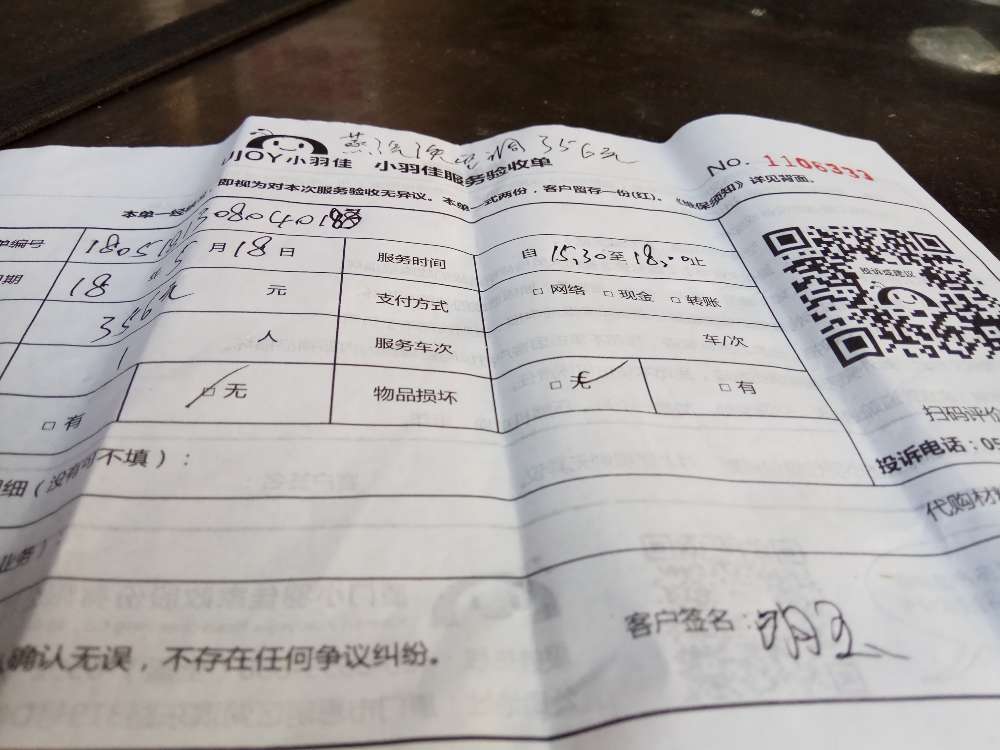 蒸汽洗空调356元
JOY小羽佳 小羽佳服务验收单
NO. 1106333
本单一经
即视为对本次服务验收无异议。本单一式两份，客户留存一份(红)。《维保须知》详见背面。
单编号
日期 18年5月18日 服务时间 自15,30至18,00止
356元 元 支付方式 □网络 □现金 □转账
1 人 服务车次 车/次
□有 □无 物品损坏 □无 □有
投诉或建议
扫码评价
投诉电话：05
细（没有可不填）：
代购材
业务）
客户签名：
确认无误，不存在任何争议纠纷。